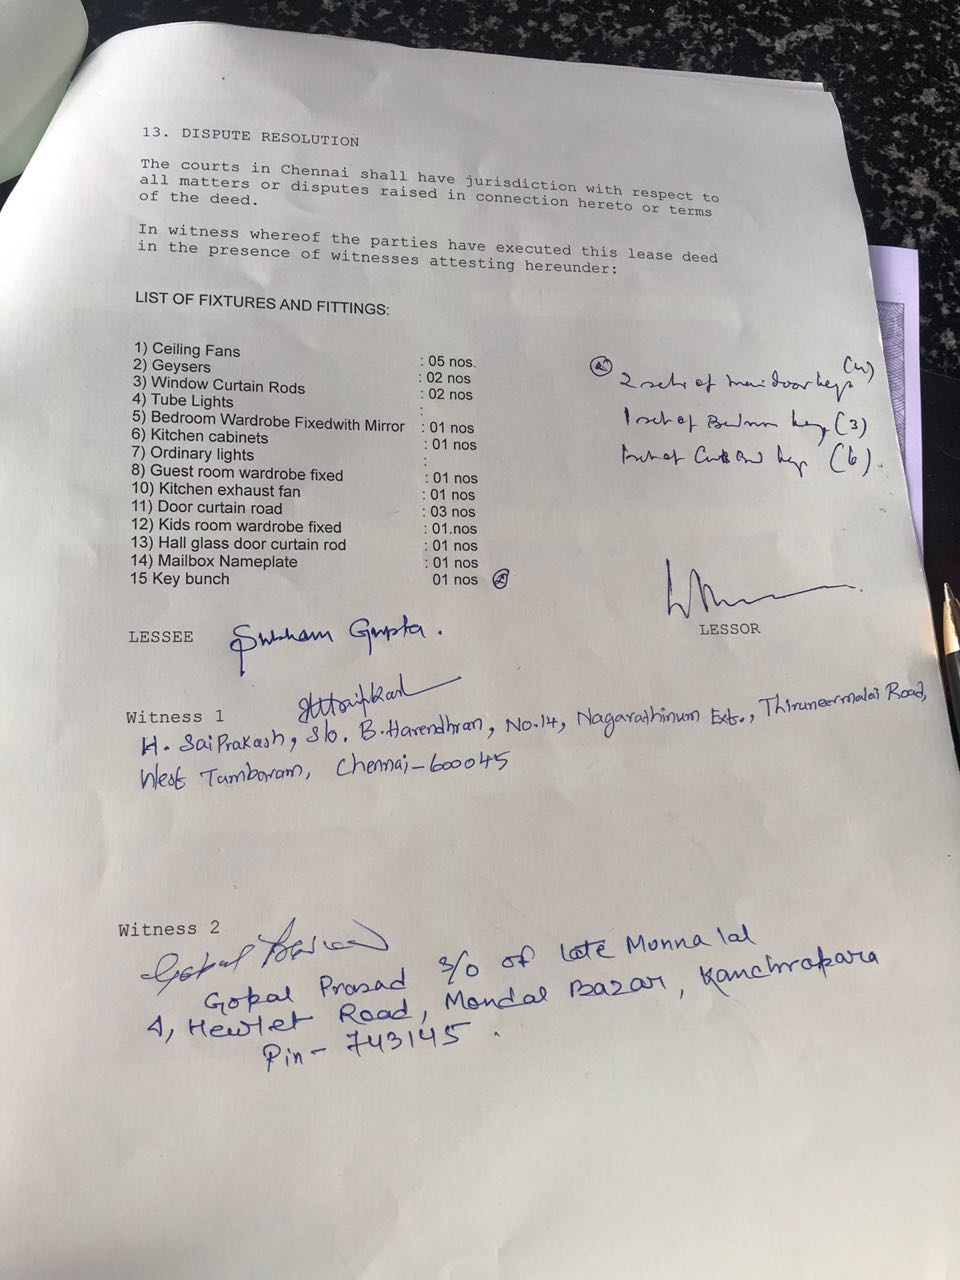 13. DISPUTE RESOLUTION
The courts in Chennai shall have jurisdiction with respect to
all matters or disputes raised in connection hereto or terms
of the deed.
In witness whereof the parties have executed this lease deed
in the presence of witnesses attesting hereunder:
LIST OF FIXTURES AND FITTINGS:
1) Ceiling Fans : 05 nos.
2) Geysers : 02 nos
3) Window Curtain Rods : 02 nos
4) Tube Lights :
5) Bedroom Wardrobe Fixedwith Mirror : 01 nos
6) Kitchen cabinets : 01 nos
7) Ordinary lights :
8) Guest room wardrobe fixed : 01 nos
10) Kitchen exhaust fan : 01 nos
11) Door curtain road : 03 nos
12) Kids room wardrobe fixed : 01.nos
13) Hall glass door curtain rod : 01 nos
14) Mailbox Nameplate : 01 nos
15 Key bunch 01 nos
2 sets of main door keys (4)
1 set of Bedroom key (3)
1 set of key (6).
LESSEE Subham Gupta.
LESSOR
Witness 1
H. SaiPrakash, S/o. B. Harendhran, No.14, Nagarathinum Extn., Thiruneermalai Road,
West Tambaram, Chennai-600045
Witness 2
Gopal Prasad
Gopal Prasad S/o of late Monna lal
4, Hewlet Road, Mondal Bazar, Kanchrapara
Pin- 743145.